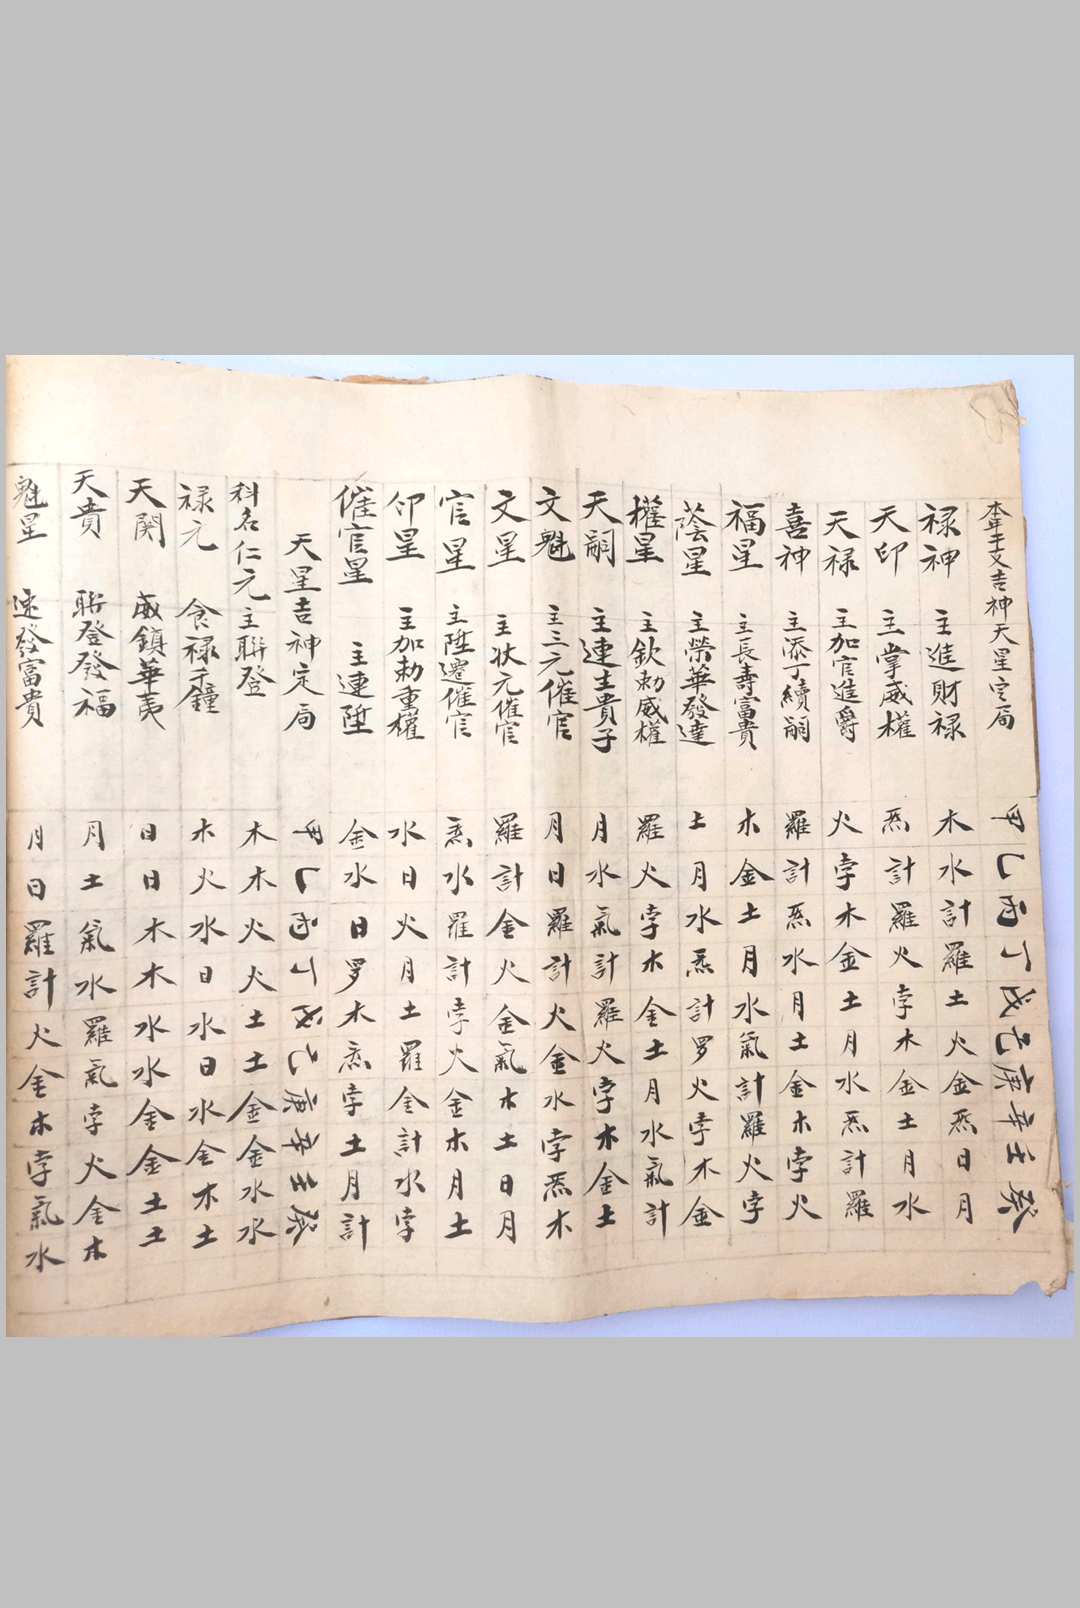 本年干文吉神天星定局 甲乙丙丁戊己庚辛壬癸
禄神 主進財禄 木水計羅土火金炁日月
天印 主掌威權 炁計羅火孛木金土月水
天禄 主加官進爵 火孛木金土月水炁計羅
喜神 主添丁續嗣 羅計炁水月土金木孛火
福星 主長壽富貴 木金土月水氣計羅火孛
蔭星 主榮華發達 土月水炁計罗火孛木金
權星 主欽勅威權 羅火孛木金土月水氣計
天嗣 主連生貴子 月水氣計羅火孛木金土
文魁 主三元催官 月日羅計火金水孛炁木
文星 主状元催官 羅計金火金氣木土日月
官星 主陞遷催官 炁水羅計孛火金木月土
印星 主加勅重權 水日火月土羅金計水孛
催官星 主連陞 金水日罗木炁孛土月計
天星吉神定局 甲乙丙丁戊己庚辛壬癸
科名仁元 主聯登 木木火火土土金金水水
禄元 食禄千鐘 木火水日水日水金木土
天関 威鎮華夷 日日木木水水金金土土
天貴 聨登發福 月土氣水羅氣孛火金木
魁星 速發富貴 月日羅計火金木孛氣水